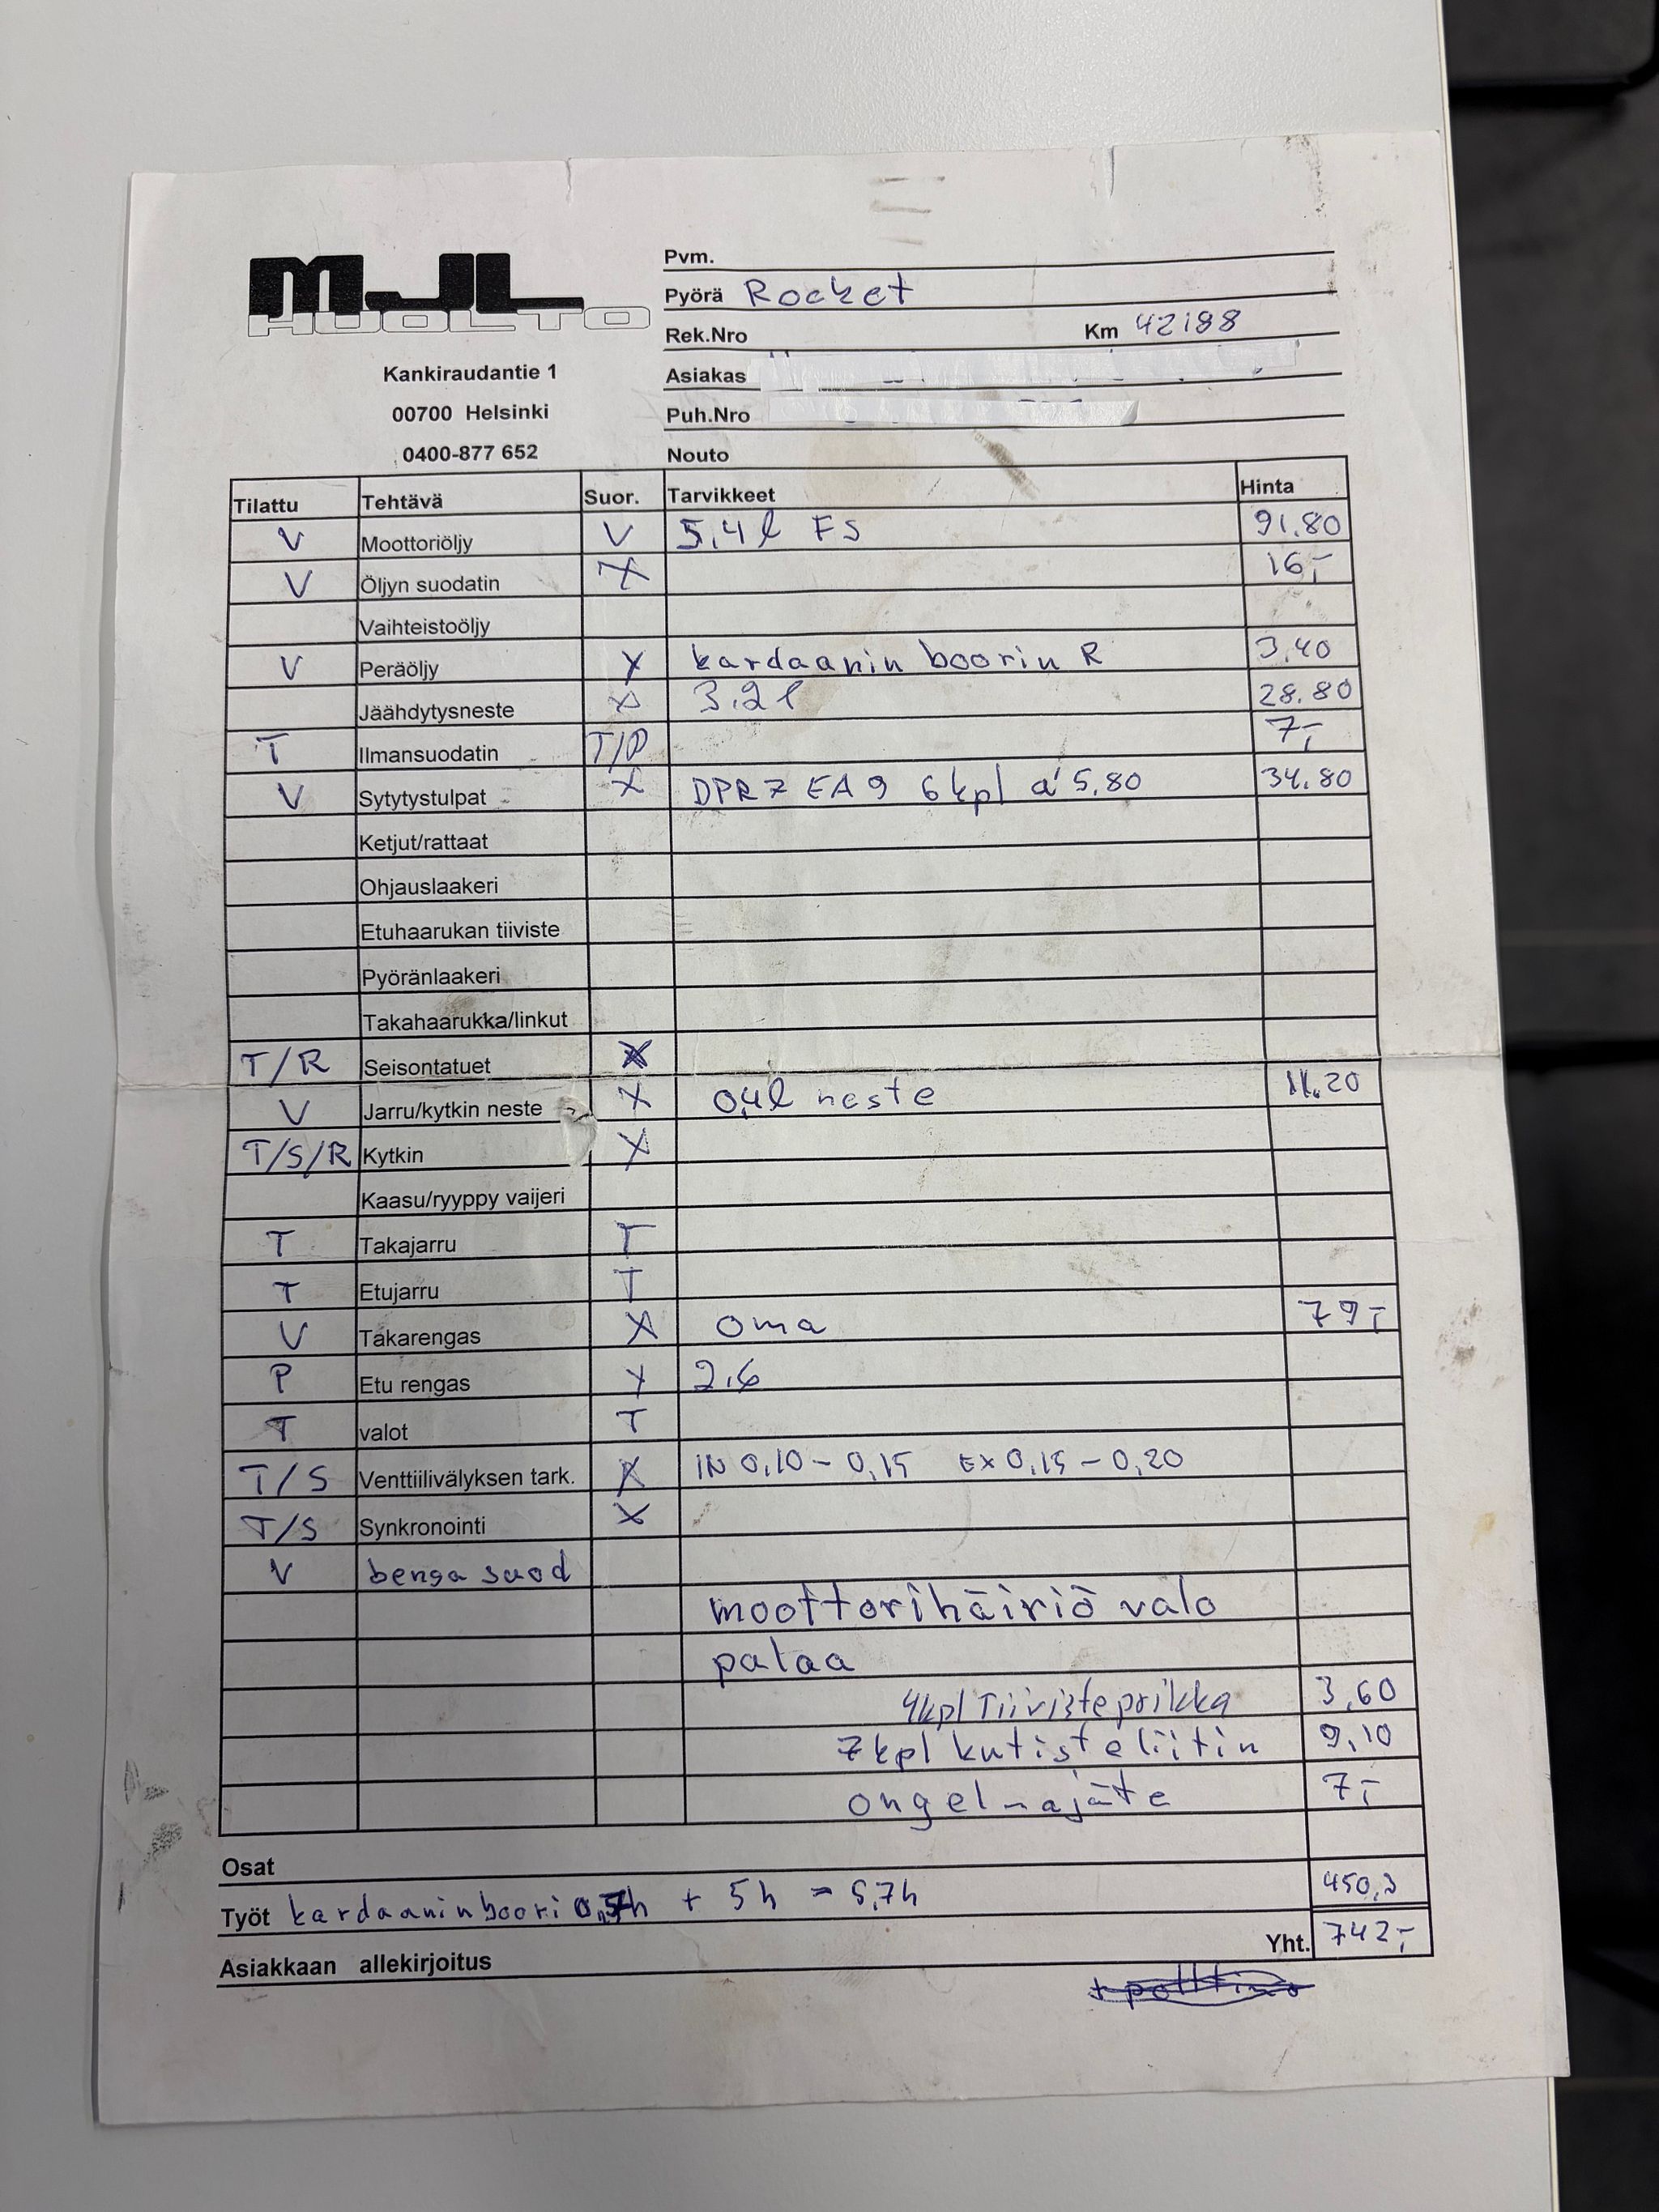 MJL
HUOLTO
Kankiraudantie 1
00700 Helsinki
0400-877 652
Pvm.
Pyörä Rocket
Rek.Nro Km 42188
Asiakas
Puh.Nro
Nouto
Tilattu Tehtävä Suor. Tarvikkeet Hinta
V Moottoriöljy V 5,4 l FS 91.80
V Öljyn suodatin X 16,-
Vaihteistoöljy
V Peräöljy X kardaanin boorin R 3.40
Jäähdytysneste X 3.2 l 28.80
T Ilmansuodatin T/P 7,-
V Sytytystulpat X DPR7 EA9 6 kpl á 5,80 34.80
Ketjut/rattaat
Ohjauslaakeri
Etuhaarukan tiiviste
Pyöränlaakeri
Takahaarukka/linkut
T/R Seisontatuet X
V Jarru/kytkin neste X 0,4l neste 11.20
T/S/R Kytkin X
Kaasu/ryyppy vaijeri
T Takajarru T
T Etujarru T
V Takarengas X oma 79,-
P Etu rengas X 2.6
T valot T
T/S Venttiilivälyksen tark. X IN 0,10 - 0,15 EX 0,15 - 0,20
T/S Synkronointi X
V benga suod
moottorihäiriö valo
palaa
4kpl Tiivisteprikka 3,60
7kpl kutisteliitin 9,10
ongelmajäte 7,-
Osat
Työt kardaaninboori 0,7h + 5h = 5,7h 450,3
Yht. 742,-
Asiakkaan allekirjoitus